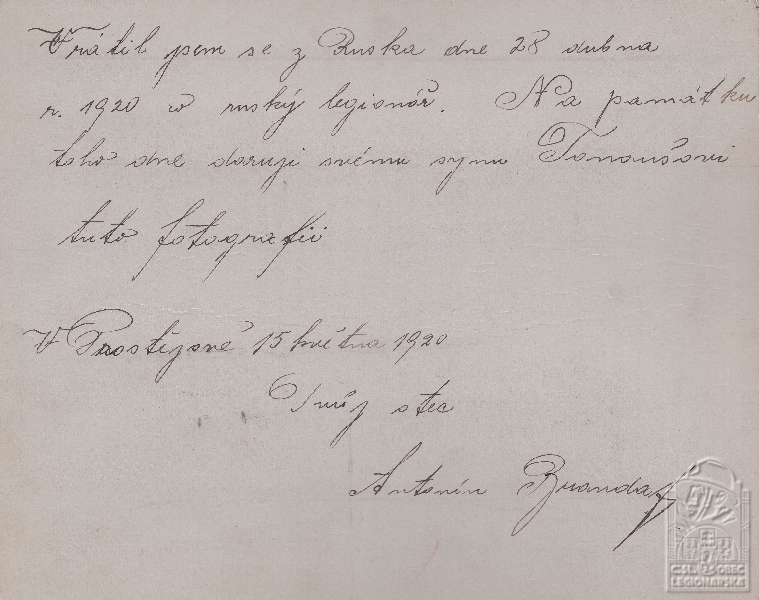 Vrátil jsem se z Ruska dne 28 dubna
r. 1920 co ruský legionář. Na památku
toho dne daruji svému synu Tonoušovi
tuto fotografii
V Prostějově 15 května 1920
Tvůj otec
Antonín Branda
ČSL. OBEC
LEGIONÁŘSKÁ